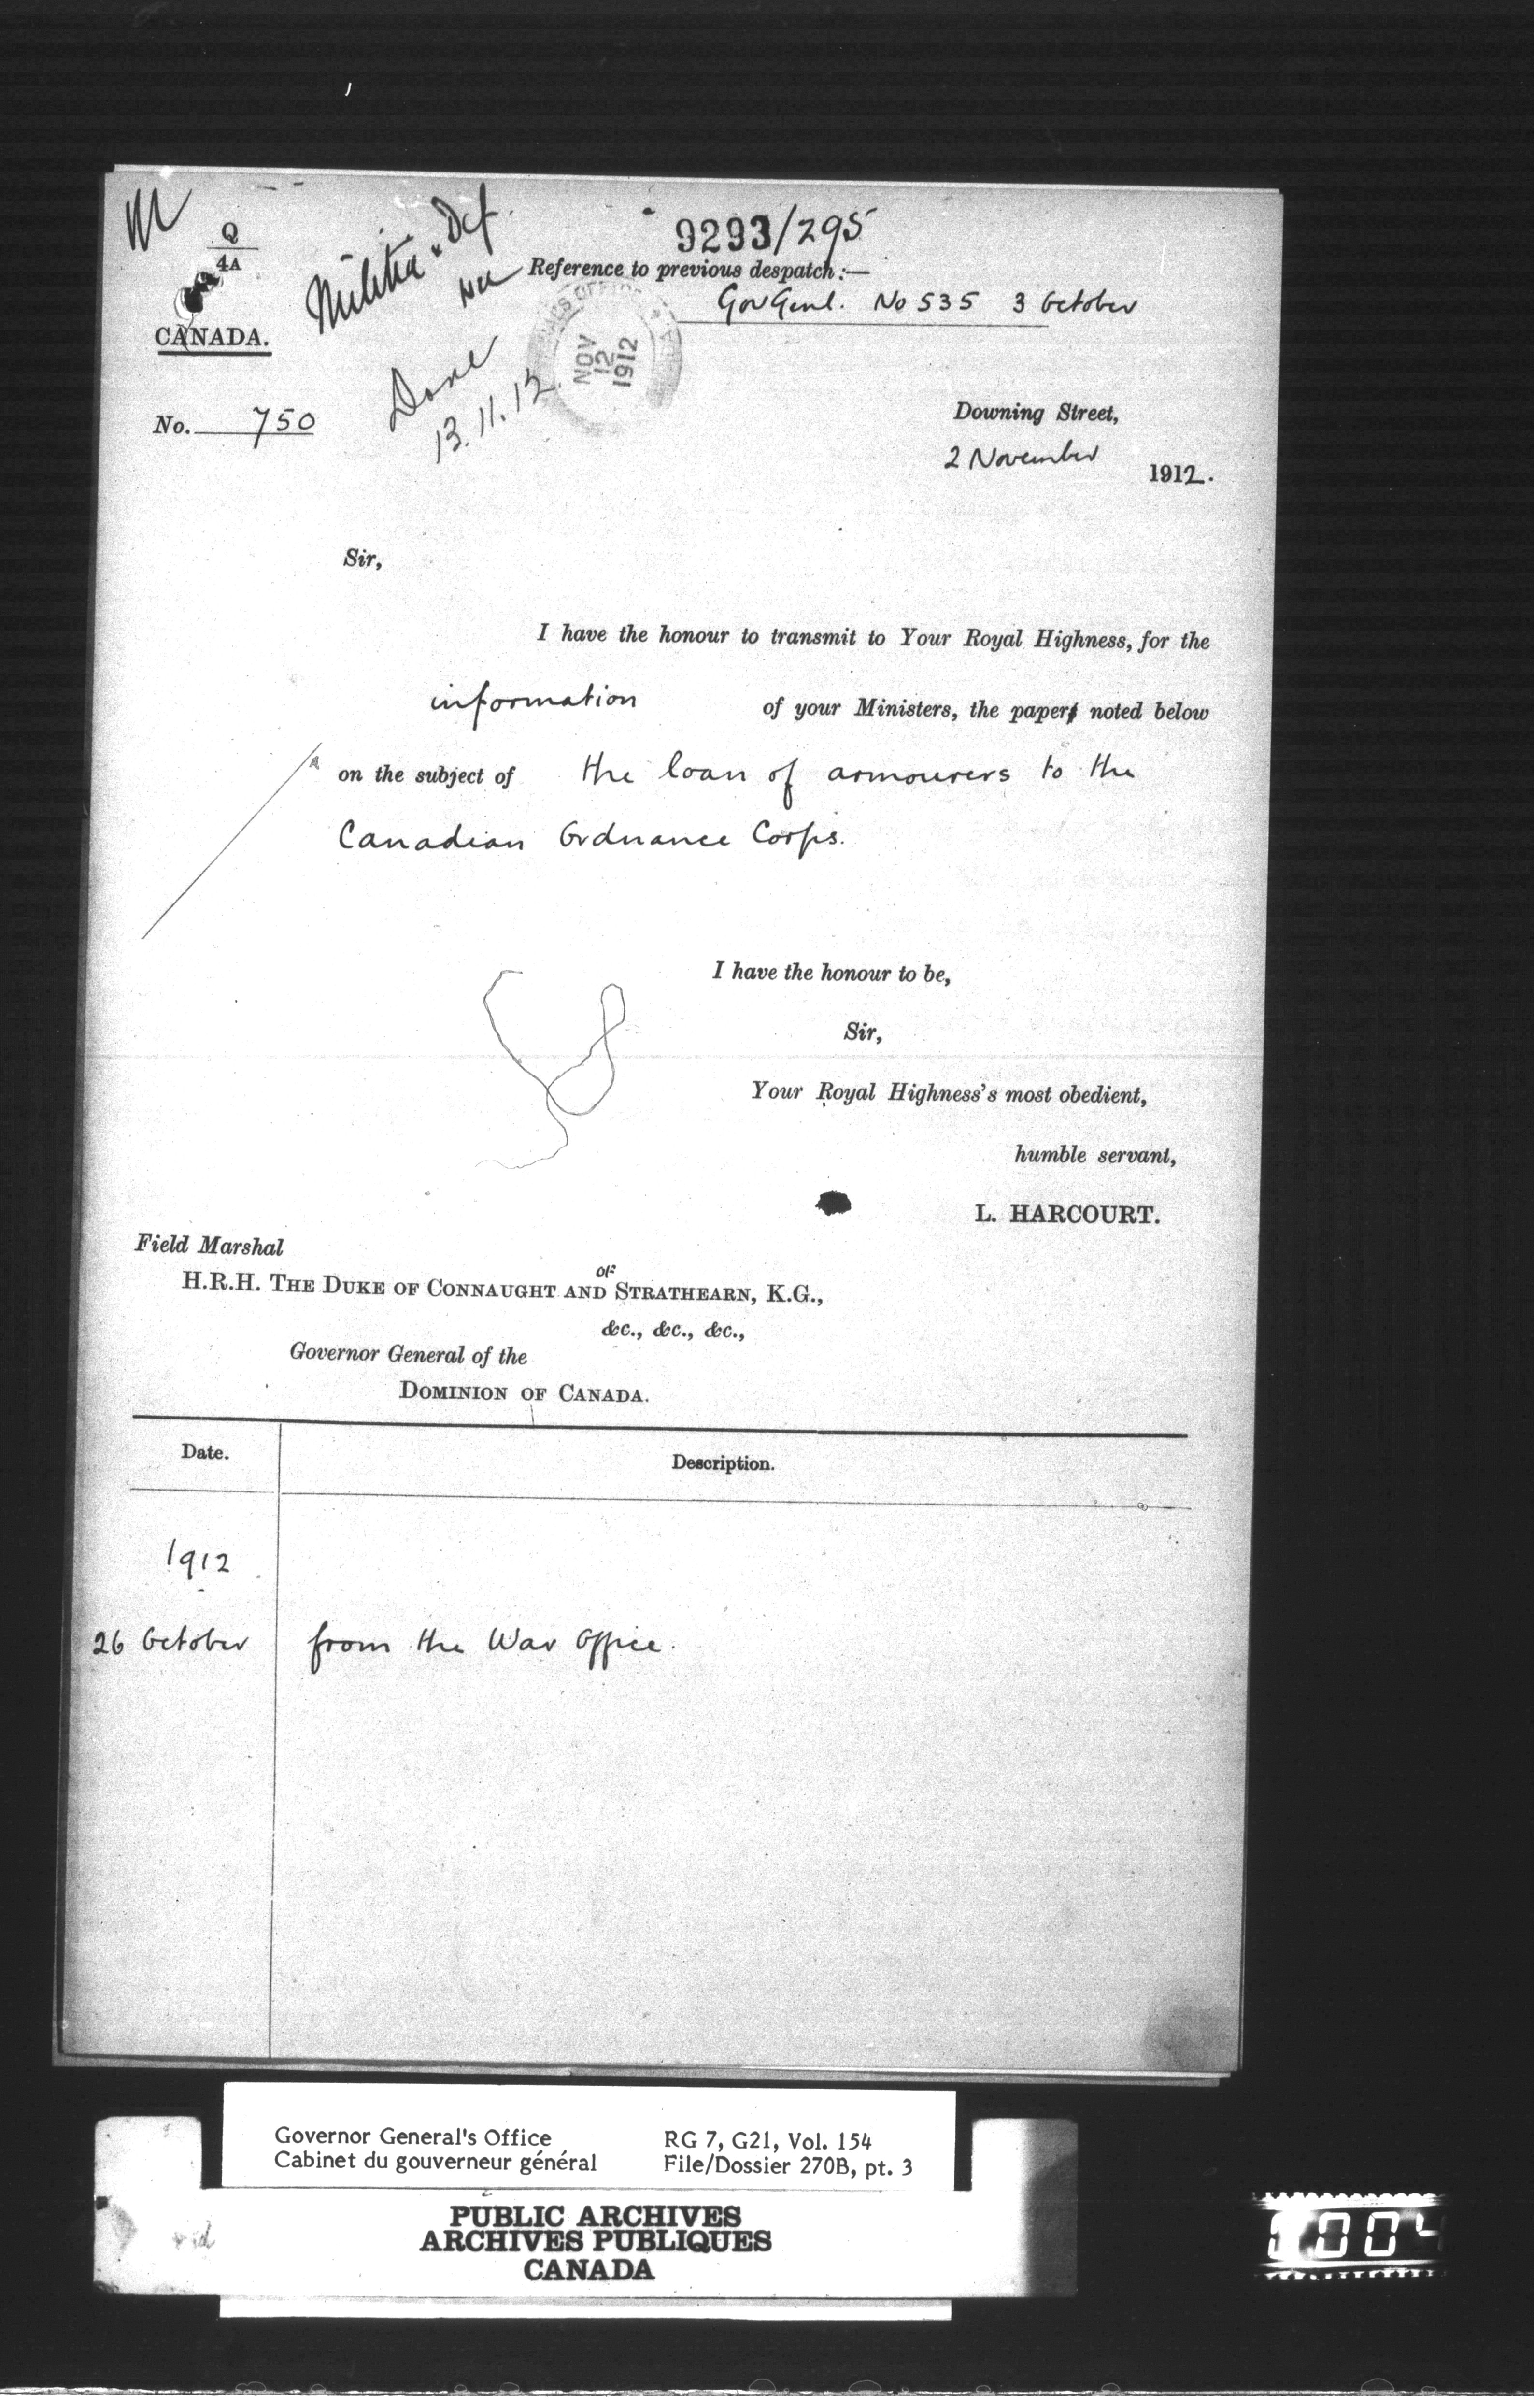 Q
4A
CANADA.
No. 750
Militia & Def.
Done
13.11.12
9293/295
Reference to previous despatch:—
Gov Genl. No 535 3 October
NOV
12
1912
Downing Street,
2 November
1912.
Sir,
I have the honour to transmit to Your Royal Highness, for the
information of your Ministers, the paper noted below
on the subject of the loan of armourers to the
Canadian Ordnance Corps.
I have the honour to be,
Sir,
Your Royal Highness's most obedient,
humble servant,
L. HARCOURT.
Field Marshal
of
H.R.H. THE DUKE OF CONNAUGHT AND STRATHEARN, K.G.,
&c., &c., &c.,
Governor General of the
DOMINION OF CANADA.
Date. Description.
1912
26 October from the War Office.
Governor General's Office RG 7, G21, Vol. 154
Cabinet du gouverneur général File/Dossier 270B, pt. 3
PUBLIC ARCHIVES
ARCHIVES PUBLIQUES
CANADA